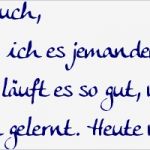 uch,
ich es jemande
läuft es so gut,
gelernt. Heute